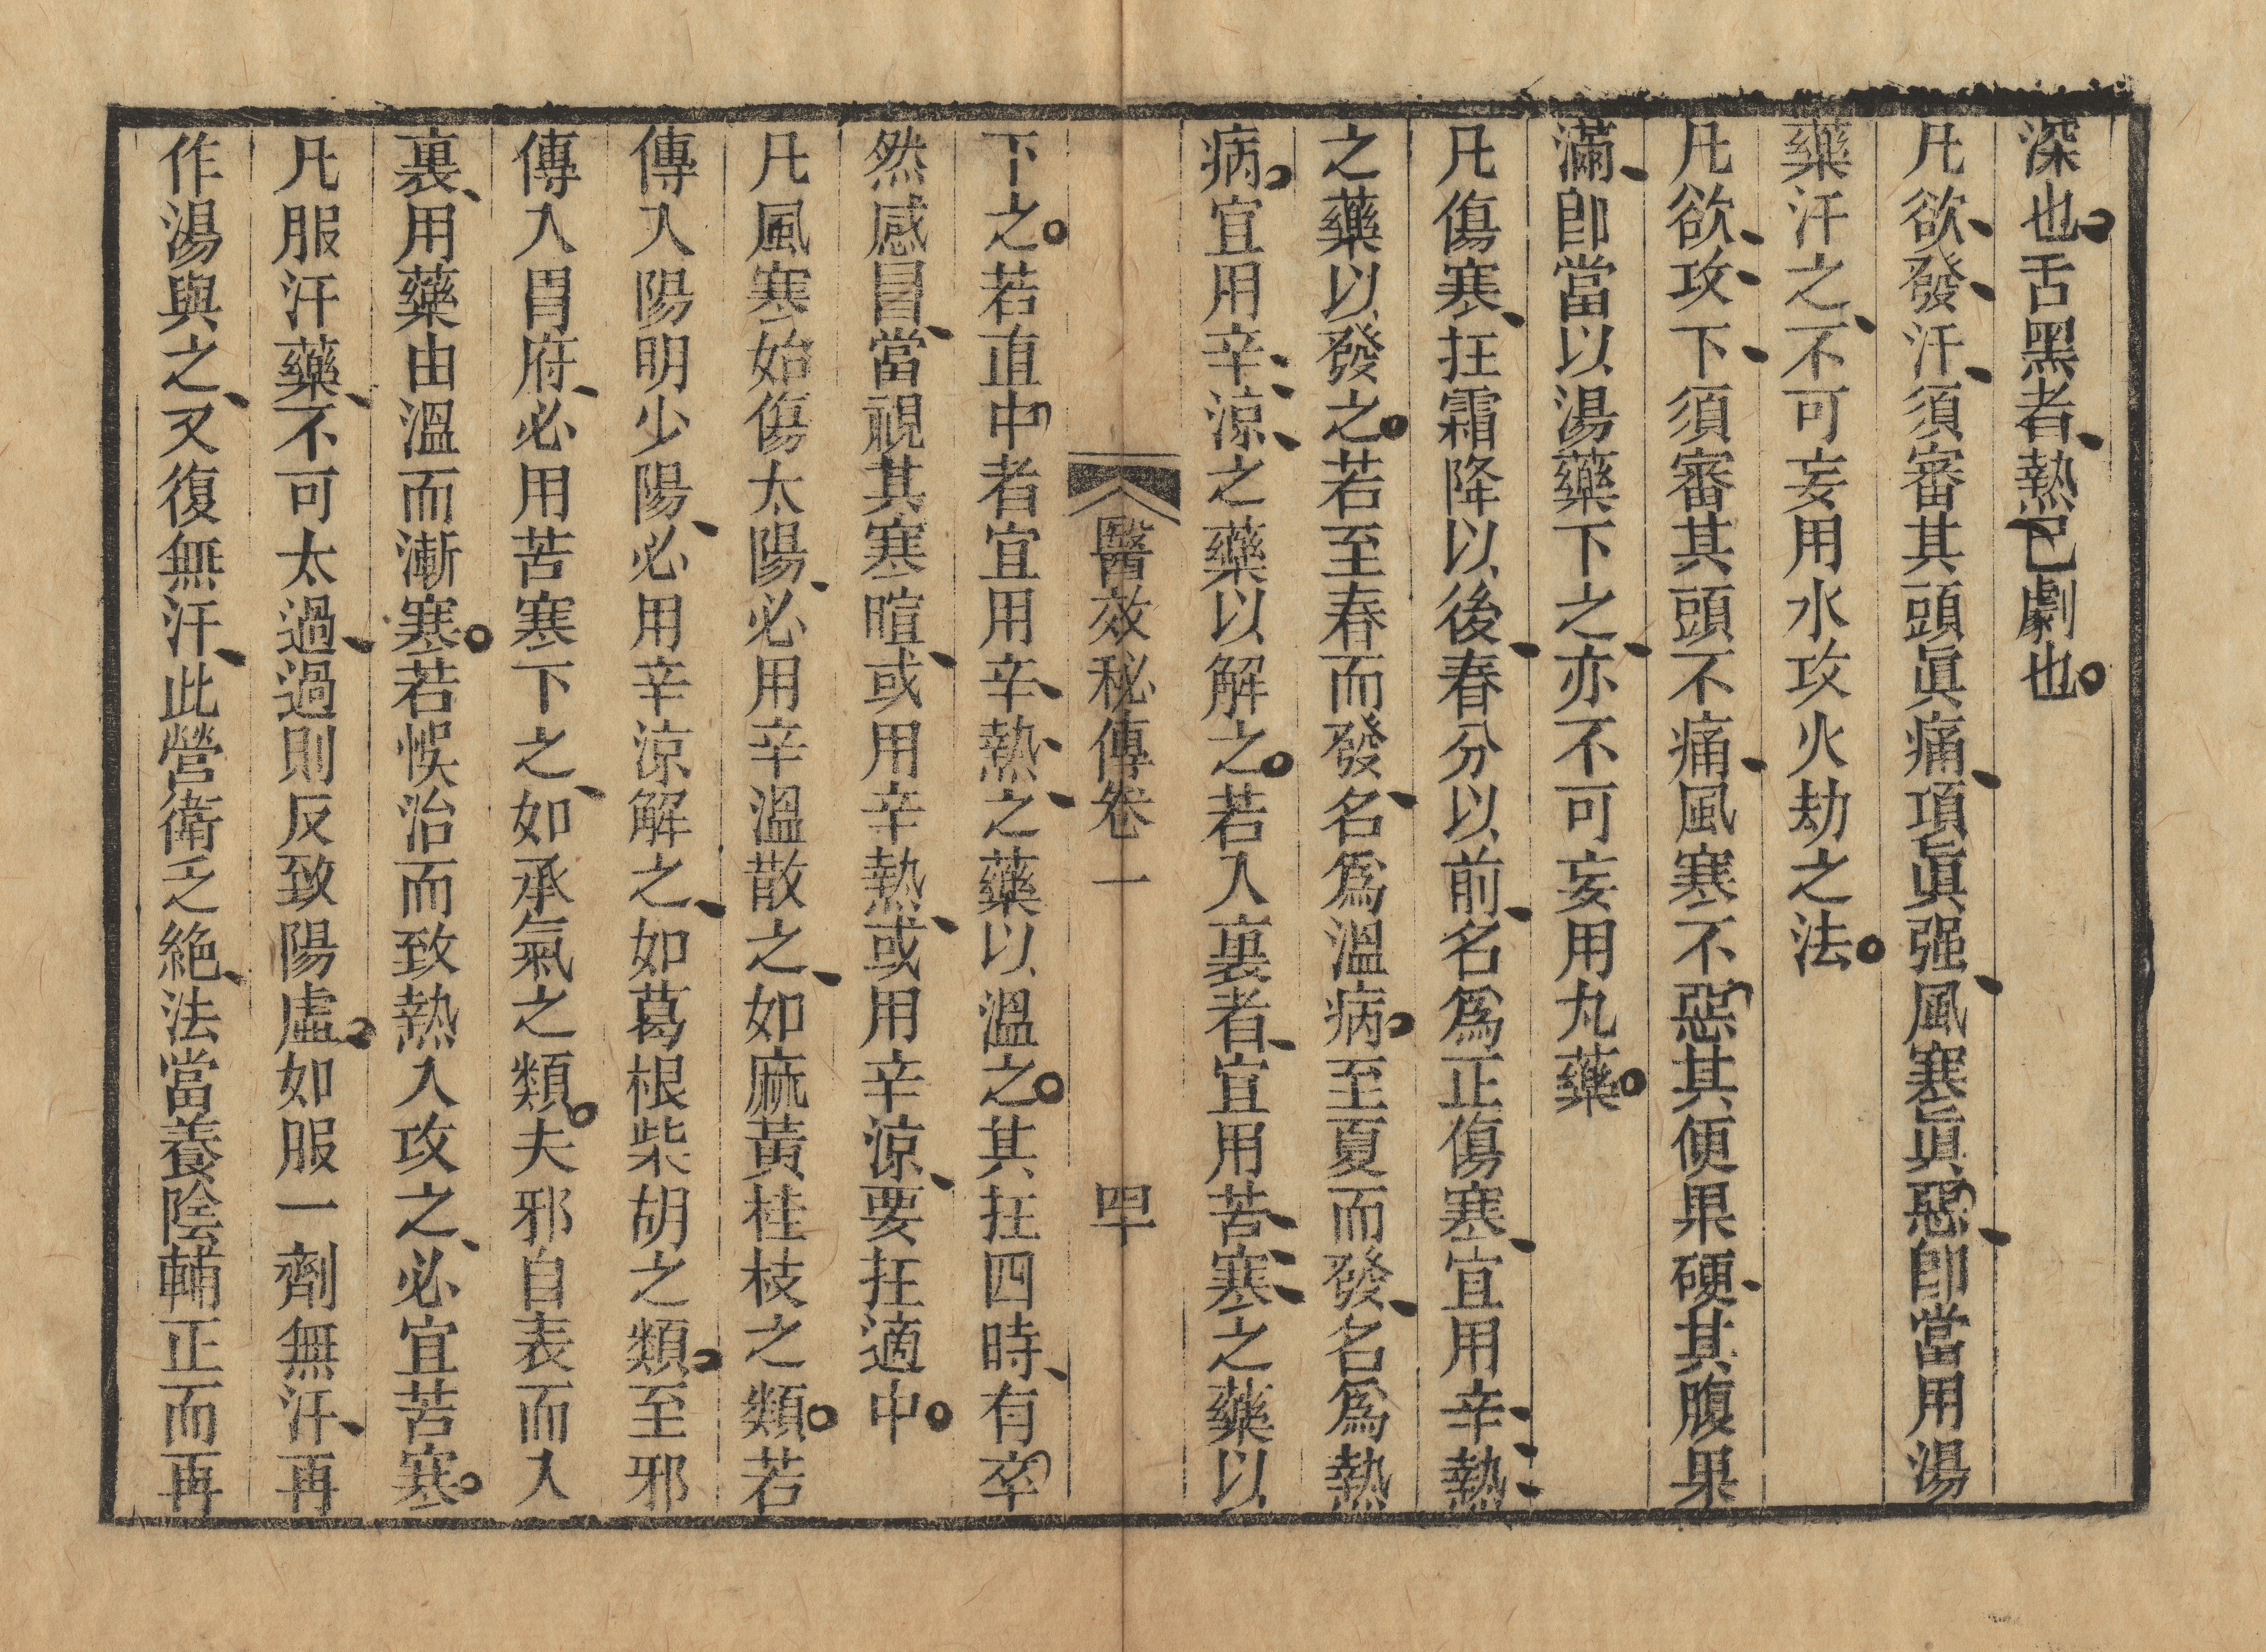 深也。舌黑者、熱已劇也。
凡欲、發、汗、須審其頭眞痛、項眞强、風寒眞惡、卽當用湯
藥汗之、不可妄用水攻火劫之法。
凡欲、攻、下、須審其頭不痛、風寒不惡其便果硬、其腹果
滿、卽當以湯藥下之、亦不可妄用丸藥。
凡傷寒、在霜降以後、春分以前、名爲正傷寒、宜用辛、熱、
之藥以發之。若至春而發、名爲溫病。至夏而發、名爲熱
病。宜用辛、涼、之藥以解之。若入裏者、宜用苦、寒、之藥以
醫效秘傳卷一 四十
下之。若直中者宜用辛、熱、之藥以溫之。其在四時、有卒
然感冒、當視其寒暄、或用辛熱、或用辛涼、要在適中。
凡風寒始傷太陽、必用辛溫散之、如麻黃桂枝之類。若
傳入陽明少陽、必用辛涼解之、如葛根柴胡之類。至邪
傳入胃府、必用苦寒下之、如承氣之類。夫邪自表而入
裏、用藥由溫而漸寒。若悞治而致熱入攻之、必宜苦寒。
凡服汗藥、不可太過、過則反致陽虛。如服一劑無汗、再
作湯與之、又復無汗、此營衛乏絶、法當養陰輔正而再